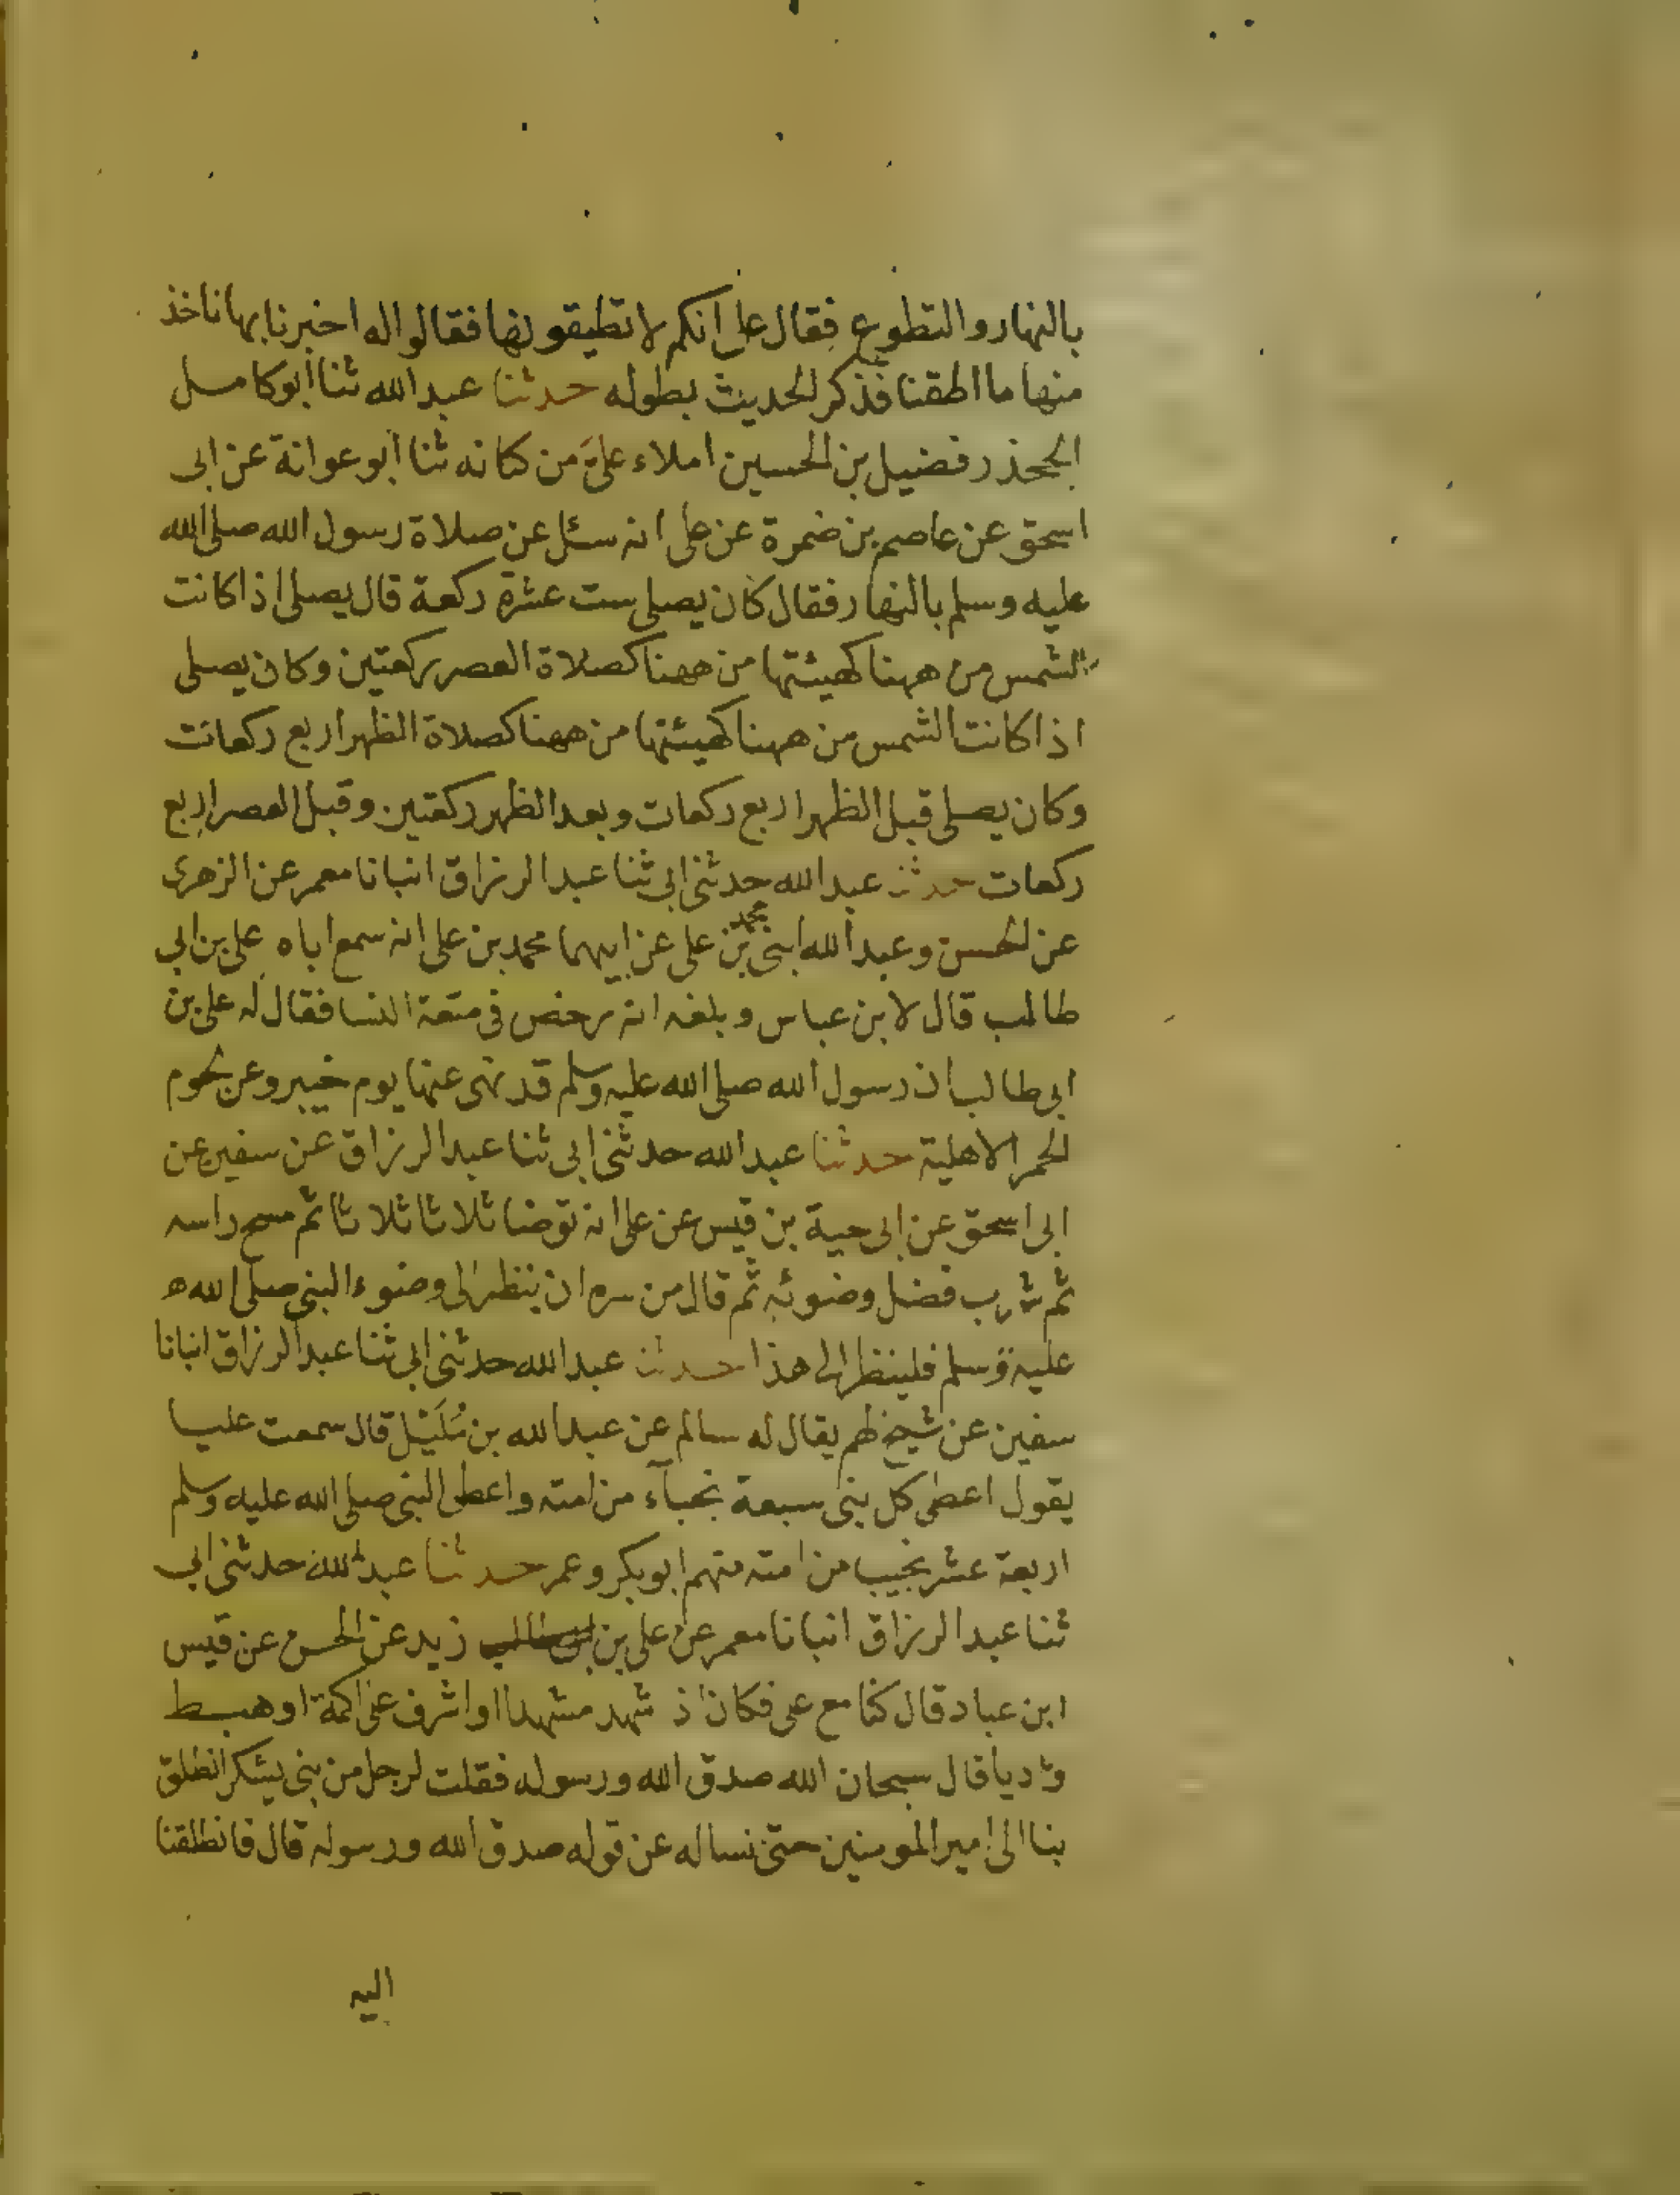 بالنهار والتطوع فقال علي انكم لا تطيقونها فقالوا له اخبرنا بها ناخذ
منها ما اطقنا فذكر الحديث بطوله حدثنا عبد الله ثنا ابو كامل
الجحذر فضيل بن الحسين املاء عليَّ من كتابه ثنا ابو عوانة عن ابي
اسحق عن عاصم بن ضمرة عن علي انه سئل عن صلاة رسول الله صلى الله
عليه وسلم بالنهار فقال كان يصلي ست عشرة ركعة قال يصلي اذا كانت
الشمس من ههنا كهيئتها من ههنا كصلاة العصر ركعتين وكان يصلي
اذا كانت الشمس من ههنا كهيئتها من ههنا كصلاة الظهر اربع ركعات
وكان يصلي قبل الظهر اربع ركعات وبعد الظهر ركعتين وقبل العصر اربع
ركعات حدثنا عبد الله حدثني ابي ثنا عبد الرزاق انبانا معمر عن الزهري
عن الحسن وعبد الله ابني محمد بن علي عن ابيهما محمد بن علي انه سمع اباه علي بن ابي
طالب قال لابن عباس وبلغه انه رخص في متعة النسا فقال له علي بن
ابي طالب ان رسول الله صلى الله عليه وسلم قد نهى عنها يوم خيبر وعن لحوم
الحمر الاهلية حدثنا عبد الله حدثني ابي ثنا عبد الرزاق عن سفين عن
ابي اسحق عن ابي حية بن قيس عن علي انه توضا ثلاثا ثلاثا ثم مسح راسه
ثم شرب فضل وضوئه ثم قال من سره ان ينظر الى وضوء النبي صلى الله
عليه وسلم فلينظر الى هذا حدثنا عبد الله حدثني ابي ثنا عبد الرزاق انبانا
سفين عن شيخ لهم يقال له سالم عن عبد الله بن مُلَيْل قال سمعت عليا
يقول اعطي كل نبي سبعة نجباء من امته واعطي النبي صلى الله عليه وسلم
اربعة عشر نجيب من امته منهم ابو بكر وعمر حدثنا عبد الله حدثني ابي
ثنا عبد الرزاق انبانا معمر عن علي بن زيد عن الحسن عن قيس
ابن عباد قال كنا مع علي فكان اذ شهد مشهدا او اشرف على اكمة او هبط
واديا قال سبحان الله صدق الله ورسوله فقلت لرجل من بني يشكر انطلق
بنا الى امير المومنين حتى نساله عن قوله صدق الله ورسوله قال فانطلقنا
اليه